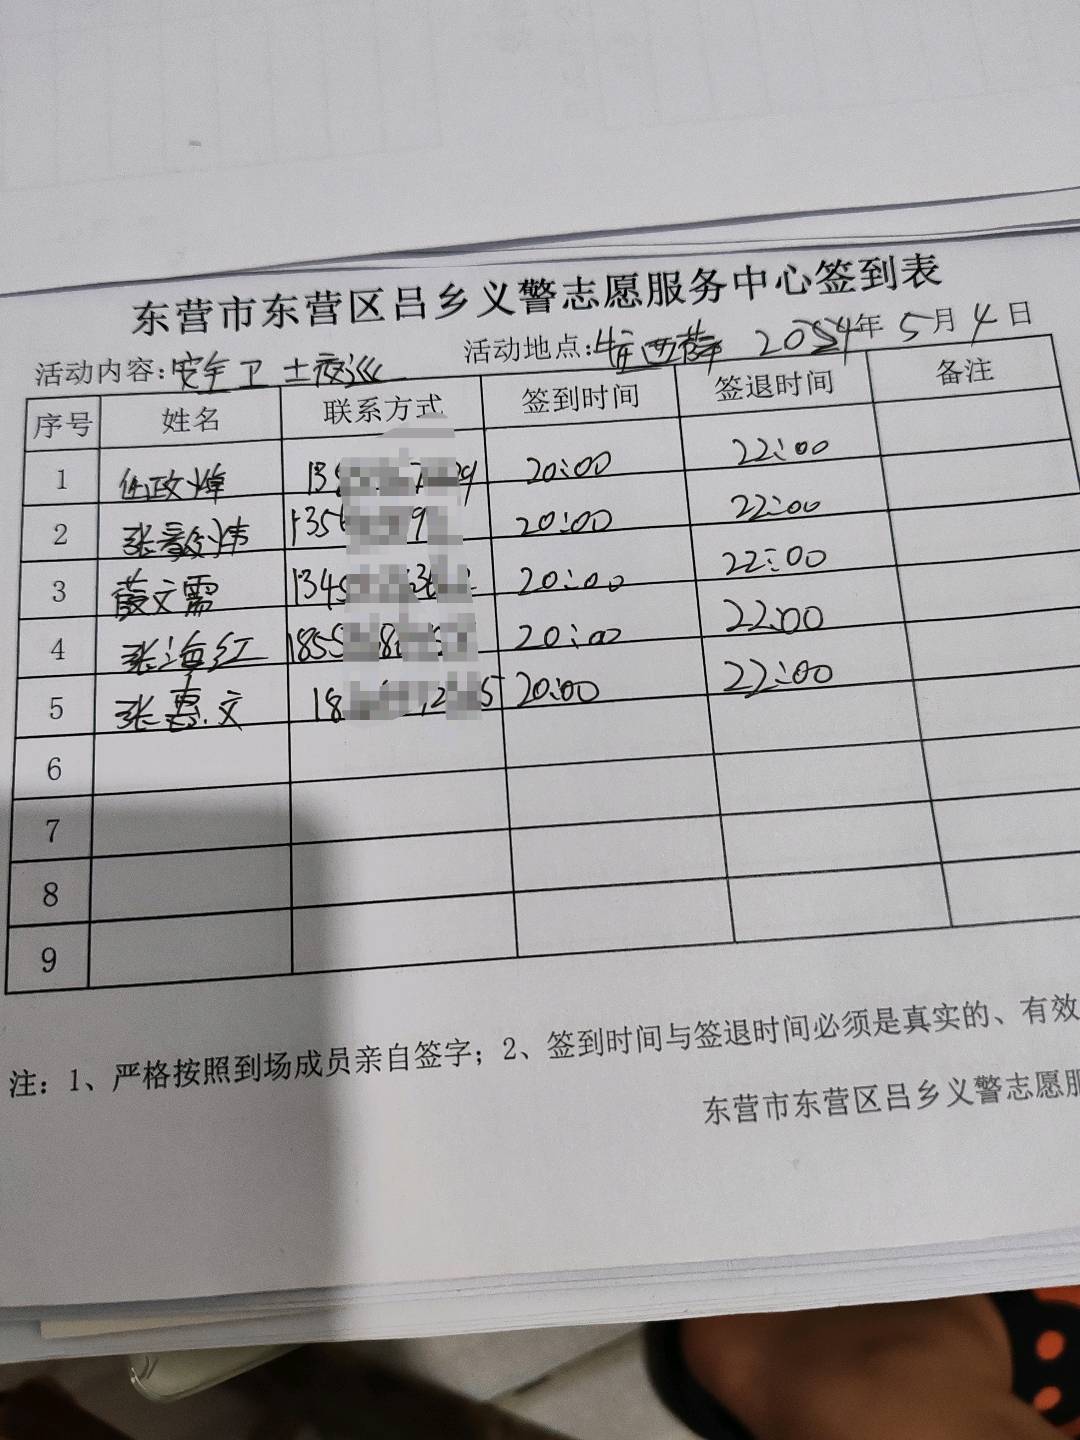 东营市东营区吕乡义警志愿服务中心签到表
活动内容:安全卫士夜巡 活动地点: 年5月4日
序号 姓名 联系方式 签到时间 签退时间 备注
1 任政 20:00 22:00
2 张毅伟 135 20:00 22:00
3 薛文霈 1345 20:00 22:00
4 张海红 1855 20:00 22:00
5 张惠文 18 20:00 22:00
6
7
8
9
注：1、严格按照到场成员亲自签字；2、签到时间与签退时间必须是真实的、有效
东营市东营区吕乡义警志愿服